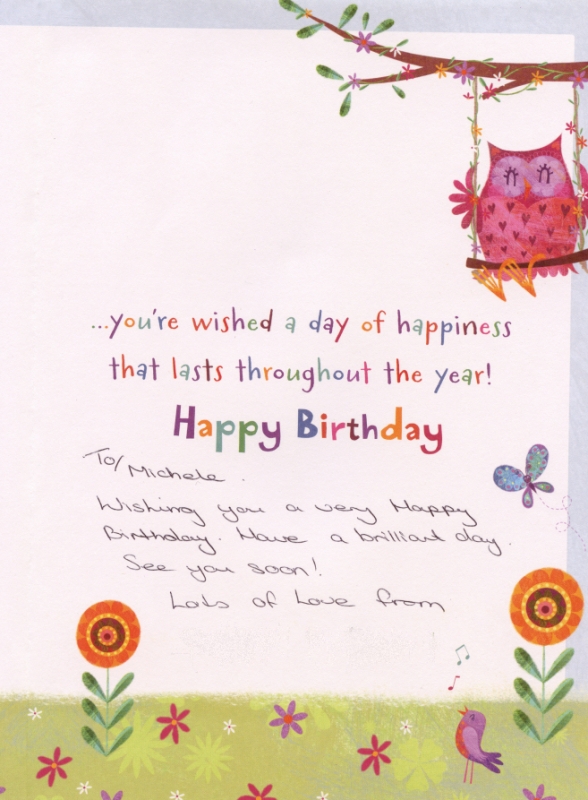 ...you're wished a day of happiness
that lasts throughout the year!
Happy Birthday
To/ Michele.
Wishing you a very Happy
Birthday. Have a brilliant day.
See you soon!
Lots of Love from